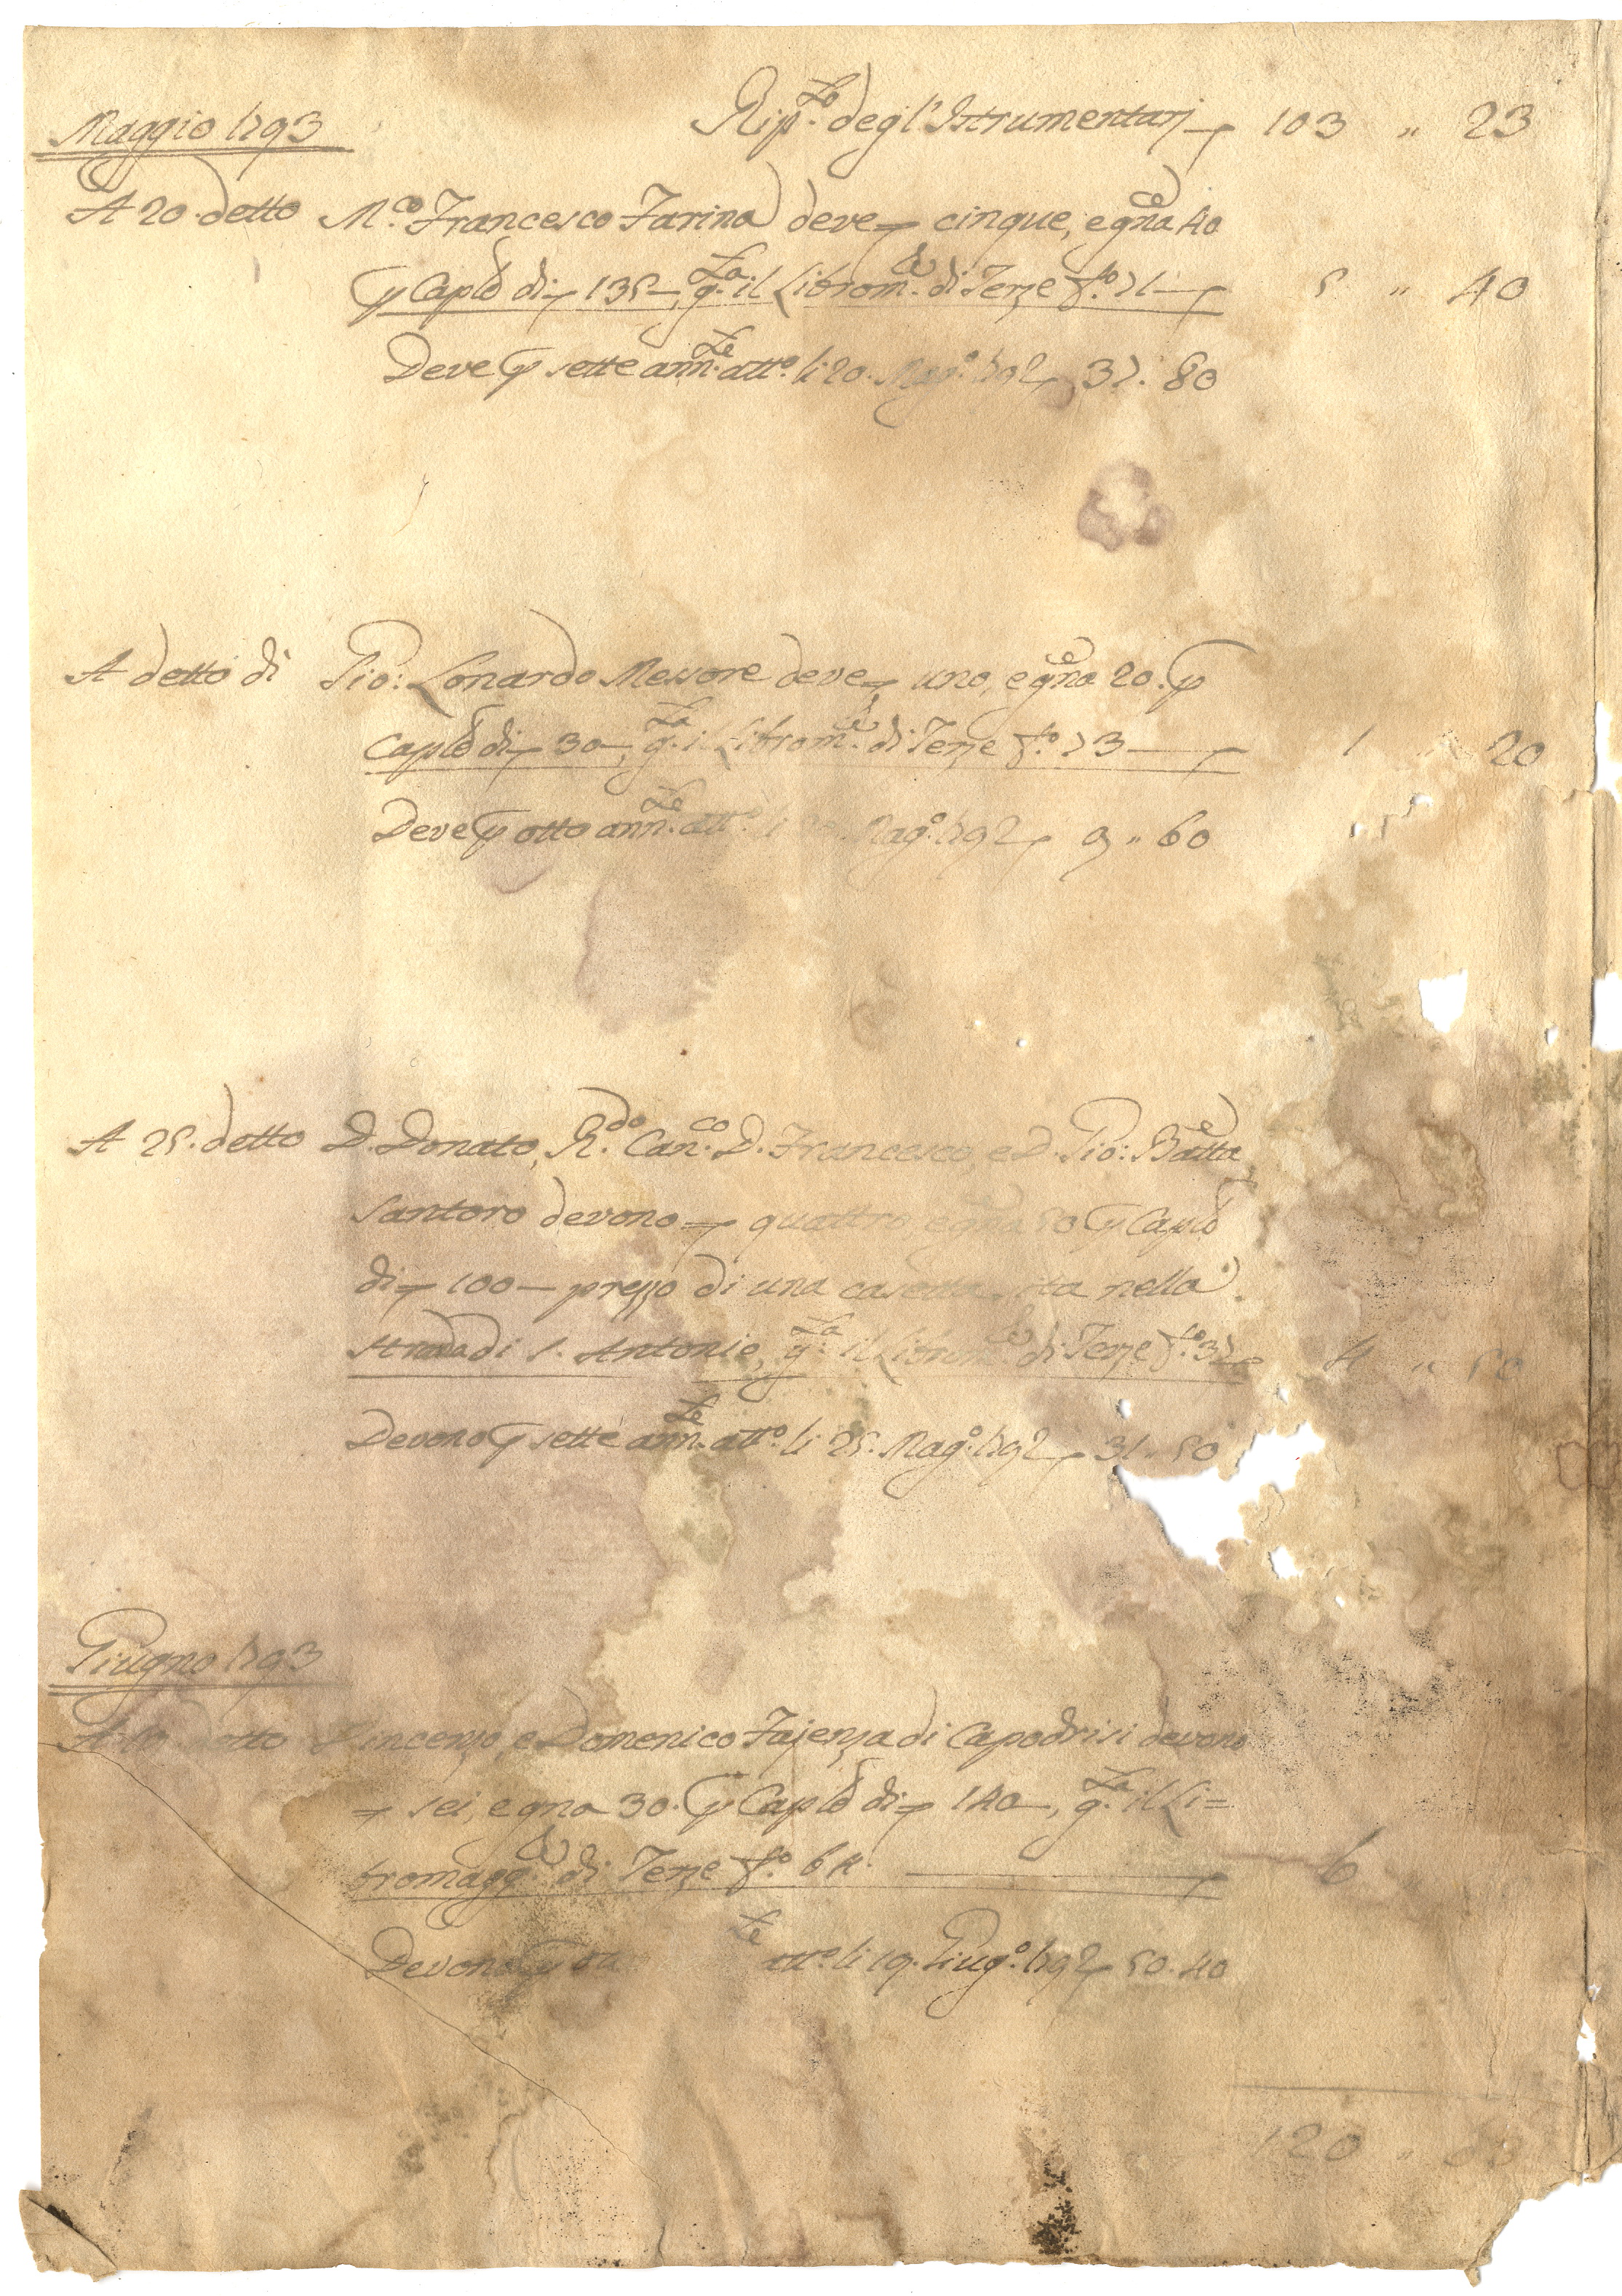 Maggio 1793
Rip.to degl'Istrumentarj 103 " 23
A 20. detto M.co Francesco Farina deve cinque, e gna 40
p Caple di 135, g.ta il Librom.re di Terze f.o 71 5 " 40
Deve p sette ann.te att.o li 20. Mag.o 1792 37. 80
A detto di Gio: Lonardo Messore deve uno, e gna 20. p
Caple di 30, g.ta il Librom.re di Terze f.o 73 1 20
Deve p otto ann.te att.o Mag.o 1792 9 " 60
A 25. detto D. Donato, R.do Can.co D. Francesco, e D. Gio: Batta
Santoro devono quattro, e gna 50 p Caple
di 100 prezzo di una casetta sita nella
strada di S. Antonio, g.ta il Librom.re di Terze f.o 37 4 " 50
Devono p sette ann.te att.o li 25. Mag.o 1792 31 " 50
Giugno 1793
A 19 detto Vincenzo, e Domenico Fajenza di Capodrisi devono
sei, e gna 30. p Caple di 140, g.ta il Li=
bromagg.re di Terze f.o 64. 6
Devono p att.o li 19. Giug.o 1792 50. 40
120 "